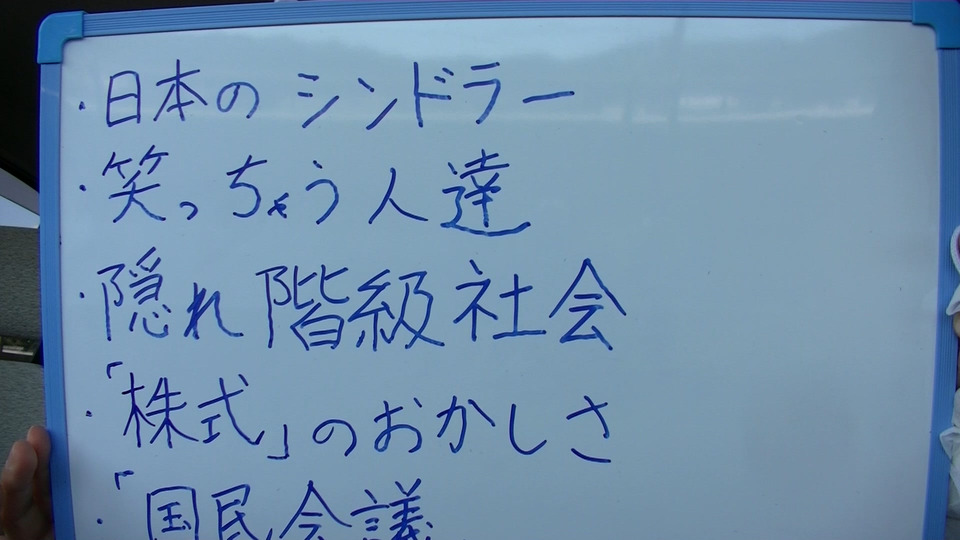 ・日本のシンドラー
・笑っちゃう人達
・隠れ階級社会
・「株式」のおかしさ
・「国民会議